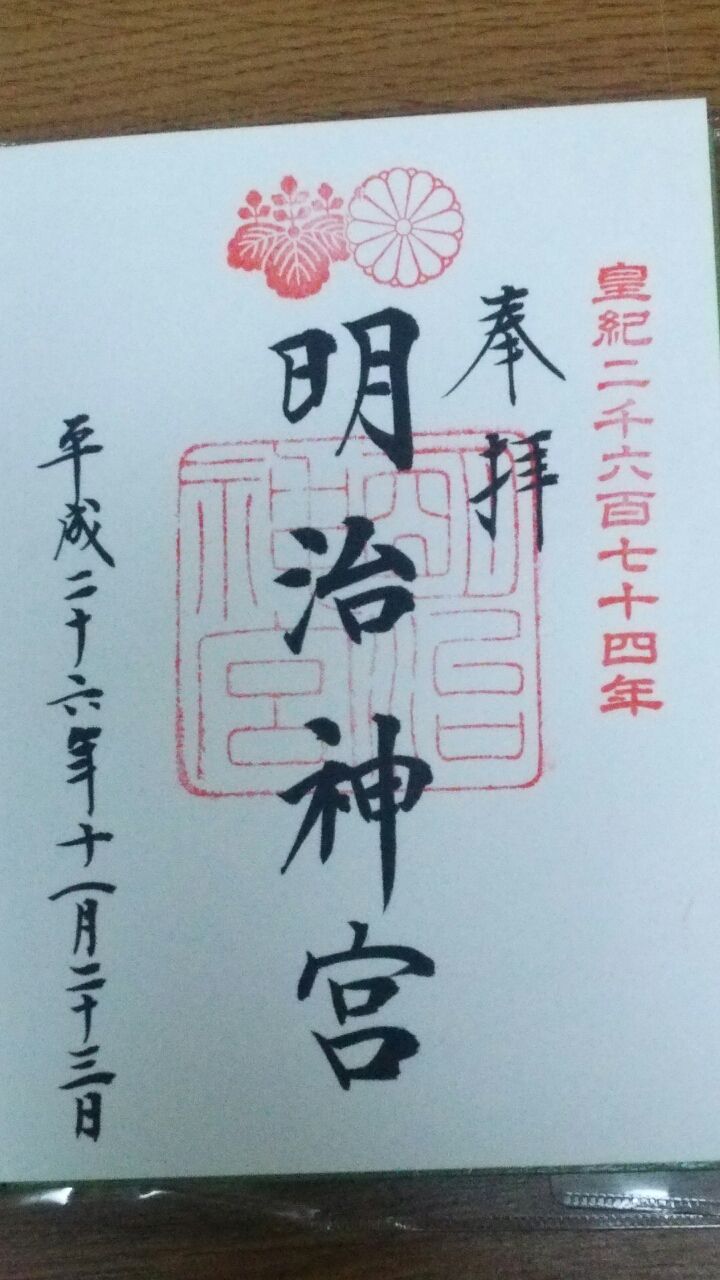 皇紀二千六百七十四年
奉拝
明治神宮
明治神宮
平成二十六年十一月二十三日